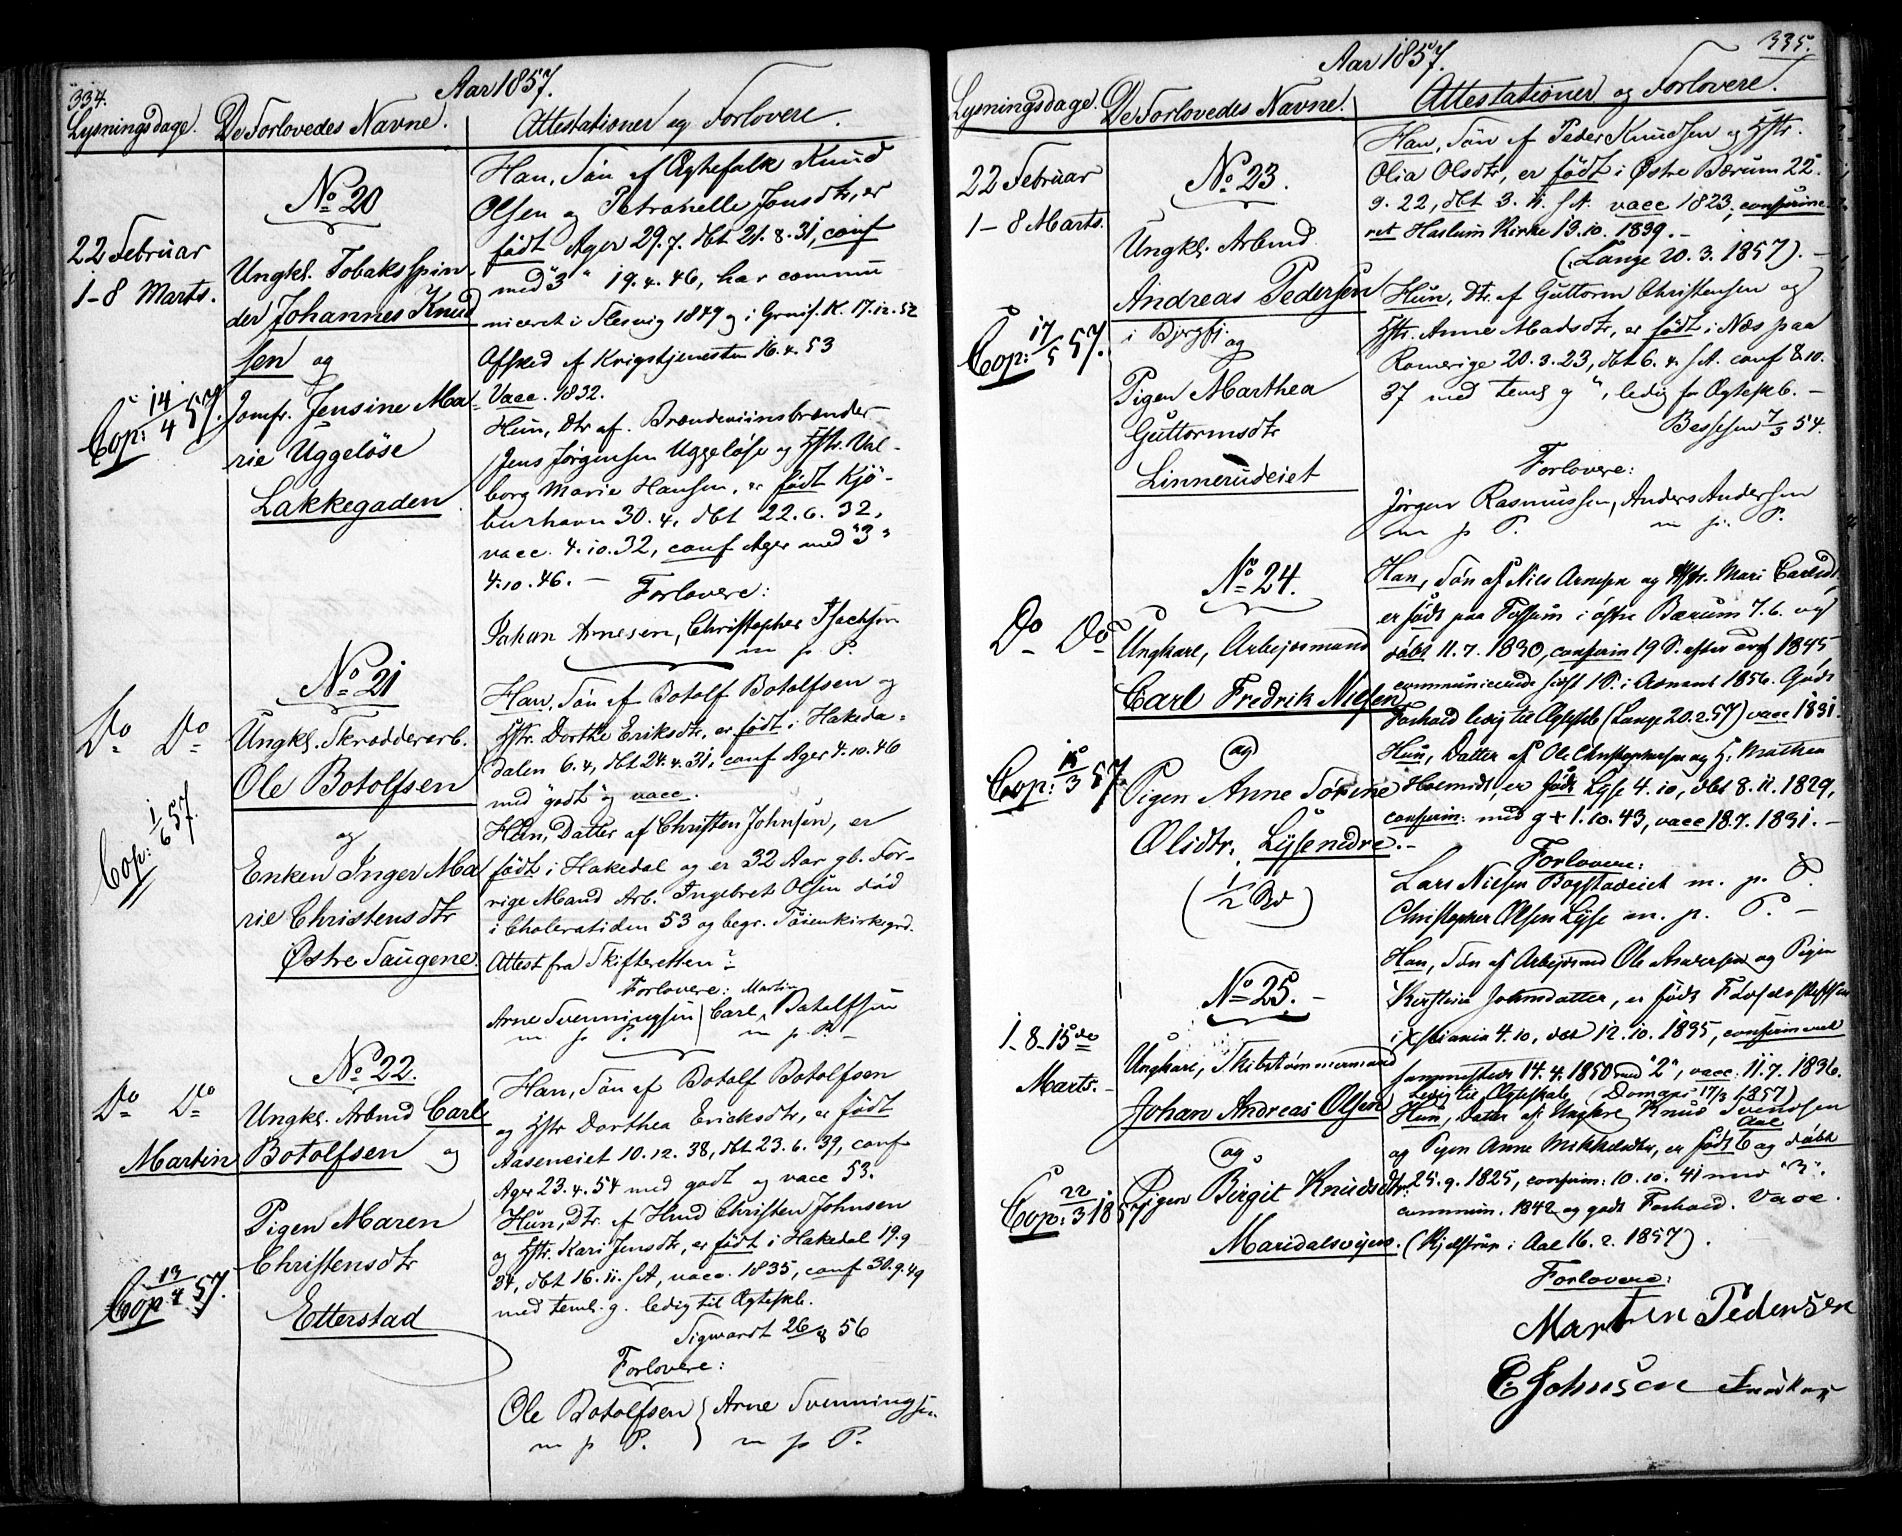 334.
Aar 1857.
Lysningsdage. De Forlovedes Navne. Attestationer og Forlovere.
No 20
22 Februar
1-8 Marts.
Ungkl. Tobaksspin
der Johannes Knud
sen og
Jomfr. Jensine Ma
rie Uggeløse
Lakkegaden
Cop: 14/4 57.
Han, Søn af Ægtefolk Knud
Olsen og Petronelle Jonsdtr, er
født Ager 29.7. dbt 21.8.31, conf
med "3" 19.4.46, har commu
niceret i Slesvig 1849 og i Grnis.K. 17.12.52
Afsked af Krigstjenesten 16.4.53
Vacc. 1832.
Hun, Dtr af Brændeviinsbrænder
Jens Jørgensen Uggeløse og Hstr. Val-
borg Marie Hansen, er født Kjø-
benhavn 30.4, dbt 22.6.32,
vacc. 4.10.32, conf Ager med "3"
4.10.46. —
Forlovere:
Johan Arnesen, Christopher Isachsen
m p P.
No 21
Do Do
Ungkl. Skrædderarb.
Ole Botolfsen
og
Enken Inger Ma
rie Christensdtr
Østre Saugene.
Cop: 1/6 57.
Han, Søn af Botolf Botolfsen og
Hstr. Dorthe Eriksdtr, er født i Hakeda-
dalen 6.4, dbt 24.4.31, conf Ager 4.10.46
med "godt" og vacc.
Hun, Datter af Christen Johnsen, er
født i Hakedal og er 32 Aar gl. For-
rige Mand Arb. Ingebret Olsen død
i Choleratiden 53 og begr. Tøienkirkegrd.
Attest fra Skifteretten?
Forlovere: Martin
Arne Svenningsen | Carl Botolfsen
m p P. m p P.
No 22.
Do Do
Ungkl. Arbmd Carl
Martin Botolfsen og
Pigen Maren
Christensdtr
Etterstad
Cop: 13/4 57.
Han, Søn af Botolf Botolfsen
og Hstr Dorthea Ericksdtr, er født
Aaseneiet 10.12.38, dbt 23.6.39, conf
Ager 23.4.54 med godt og vacc 53.
Hun, Dtr. af Hmd Christen Johnsen
og Hstr. Kari Jensdtr, er født i Hakedal 19.9
34, dbt 16.11. s.A, vacc. 1835, conf 30.9.49
med teml. g. ledig til Ægteskb.
Sigwardt 26/8 56
Forlovere:
Ole Botolfsen } Arne Svenningsen
m p P. m p P.
335.
Aar 1857.
Lysningsdage. De Forlovedes Navne. Attestationer og Forlovere.
22 Februar
1-8 Marts.
No 23.
Ungkl. Arbmd
Andreas Pedersen
og
Pigen Marthea
Guttormsdtr
Linnerudeiet
Cop: 17/5 57.
Han, Søn af Peder Knudsen og Hstr.
Olia Olsdtr, er født i Østre Bærum 22.
9. 22, dbt 3. s.A. vacc 1823, confirme-
ret Haslum Kirke 13.10.1839. -
(Lange 20.3.1857). -
Hun, Dtr. af Guttorm Christensen og
Hstr. Anne Madsdtr, er født i Næs paa
Romerige 20.3.23, dbt 6.4. s.A. conf 8.10.
37 med teml g", ledig for Ægteskb. -
7/3 54.
Forlovere:
Jørgen Rasmussen, Anders Andersen
m p P. m p. P.
No 24.
Do Do
Ungkarl, Arbejdsmand
Carl Fredrik Nielsen
og
Pigen Anne Sørine
Olidtr. Lysenedre.-
Cop: 15/3 57.
Han, Søn af Nils Arnesen og Hstr. Mari Carlsdt.
er født paa Fossum i østre Bærum 7.6. og
døbt 11.7.1830, confirm 19 S. efter Trf 1845,
communicerede sidst 1 S. i Advent 1856. Godt
Forhold ledig til Ægteskb (Lange 20.2.57) vacc 1831.
Hun, Datter af Ole Christophersen og H. Mathea
er født Lyse 4.10, dbt 8.11.1829,
confirm: med g + 1.10.43, vacc 18.7.1831. -
Forlovere:
Lars Nielsen Bogstadeiet m. p. P.
Christopher Olsen Lyse m. p. P. -
No 25. -
1-8-15de
Marts. -
Ungkarl, Skibstømmermand
Johan Andreas Olsen
og
Pigen Birgit Knudsdtr.
Maridalsvejen.
Cop: 22/3 1857
Han, Søn af Arbejdsmd Ole Andersen og Pigen
Kirstine Johnsdatter, er født Fødselsstiftelsen
i Xstiania 4.10, dbt 12.10.1835, confirmeret
sammesteds 14.4.1850 med "2", vacc. 11.7.1836.
Ledig til Ægteskab (Domapi 17/3 1857)
Hun, Datter af Ungkare Knud Svendsen
og Pigen Anne Mikkelsdtr, er født Aal og døbt
25.9.1825, confirm: 10.10.41 med "3".
commun. 1842 og godt Forhold. Vacc.
(Kjelstrup i Aal 16.2.1857).
Forlovere:
Martin Pedersen
C Johnsen Snedker